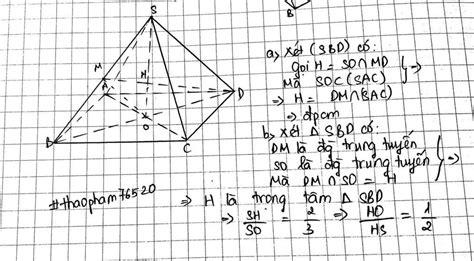 B
S
M
H
A
D
O
B
C
a, Xét (SBD) có:
gọi H = SO∩MD
Mà SO⊂(SAC) } ⇒
⇒ H = DM∩(SAC)
⇒ đpcm
b, Xét Δ SBD có:
DM là đg trung tuyến
SO là đg trung tuyến } ⇒
Mà DM∩SO = H
#thaopham76520
⇒ H là trọng tâm Δ SBD
⇒ SH/SO = 2/3 ⇒ HO/HS = 1/2